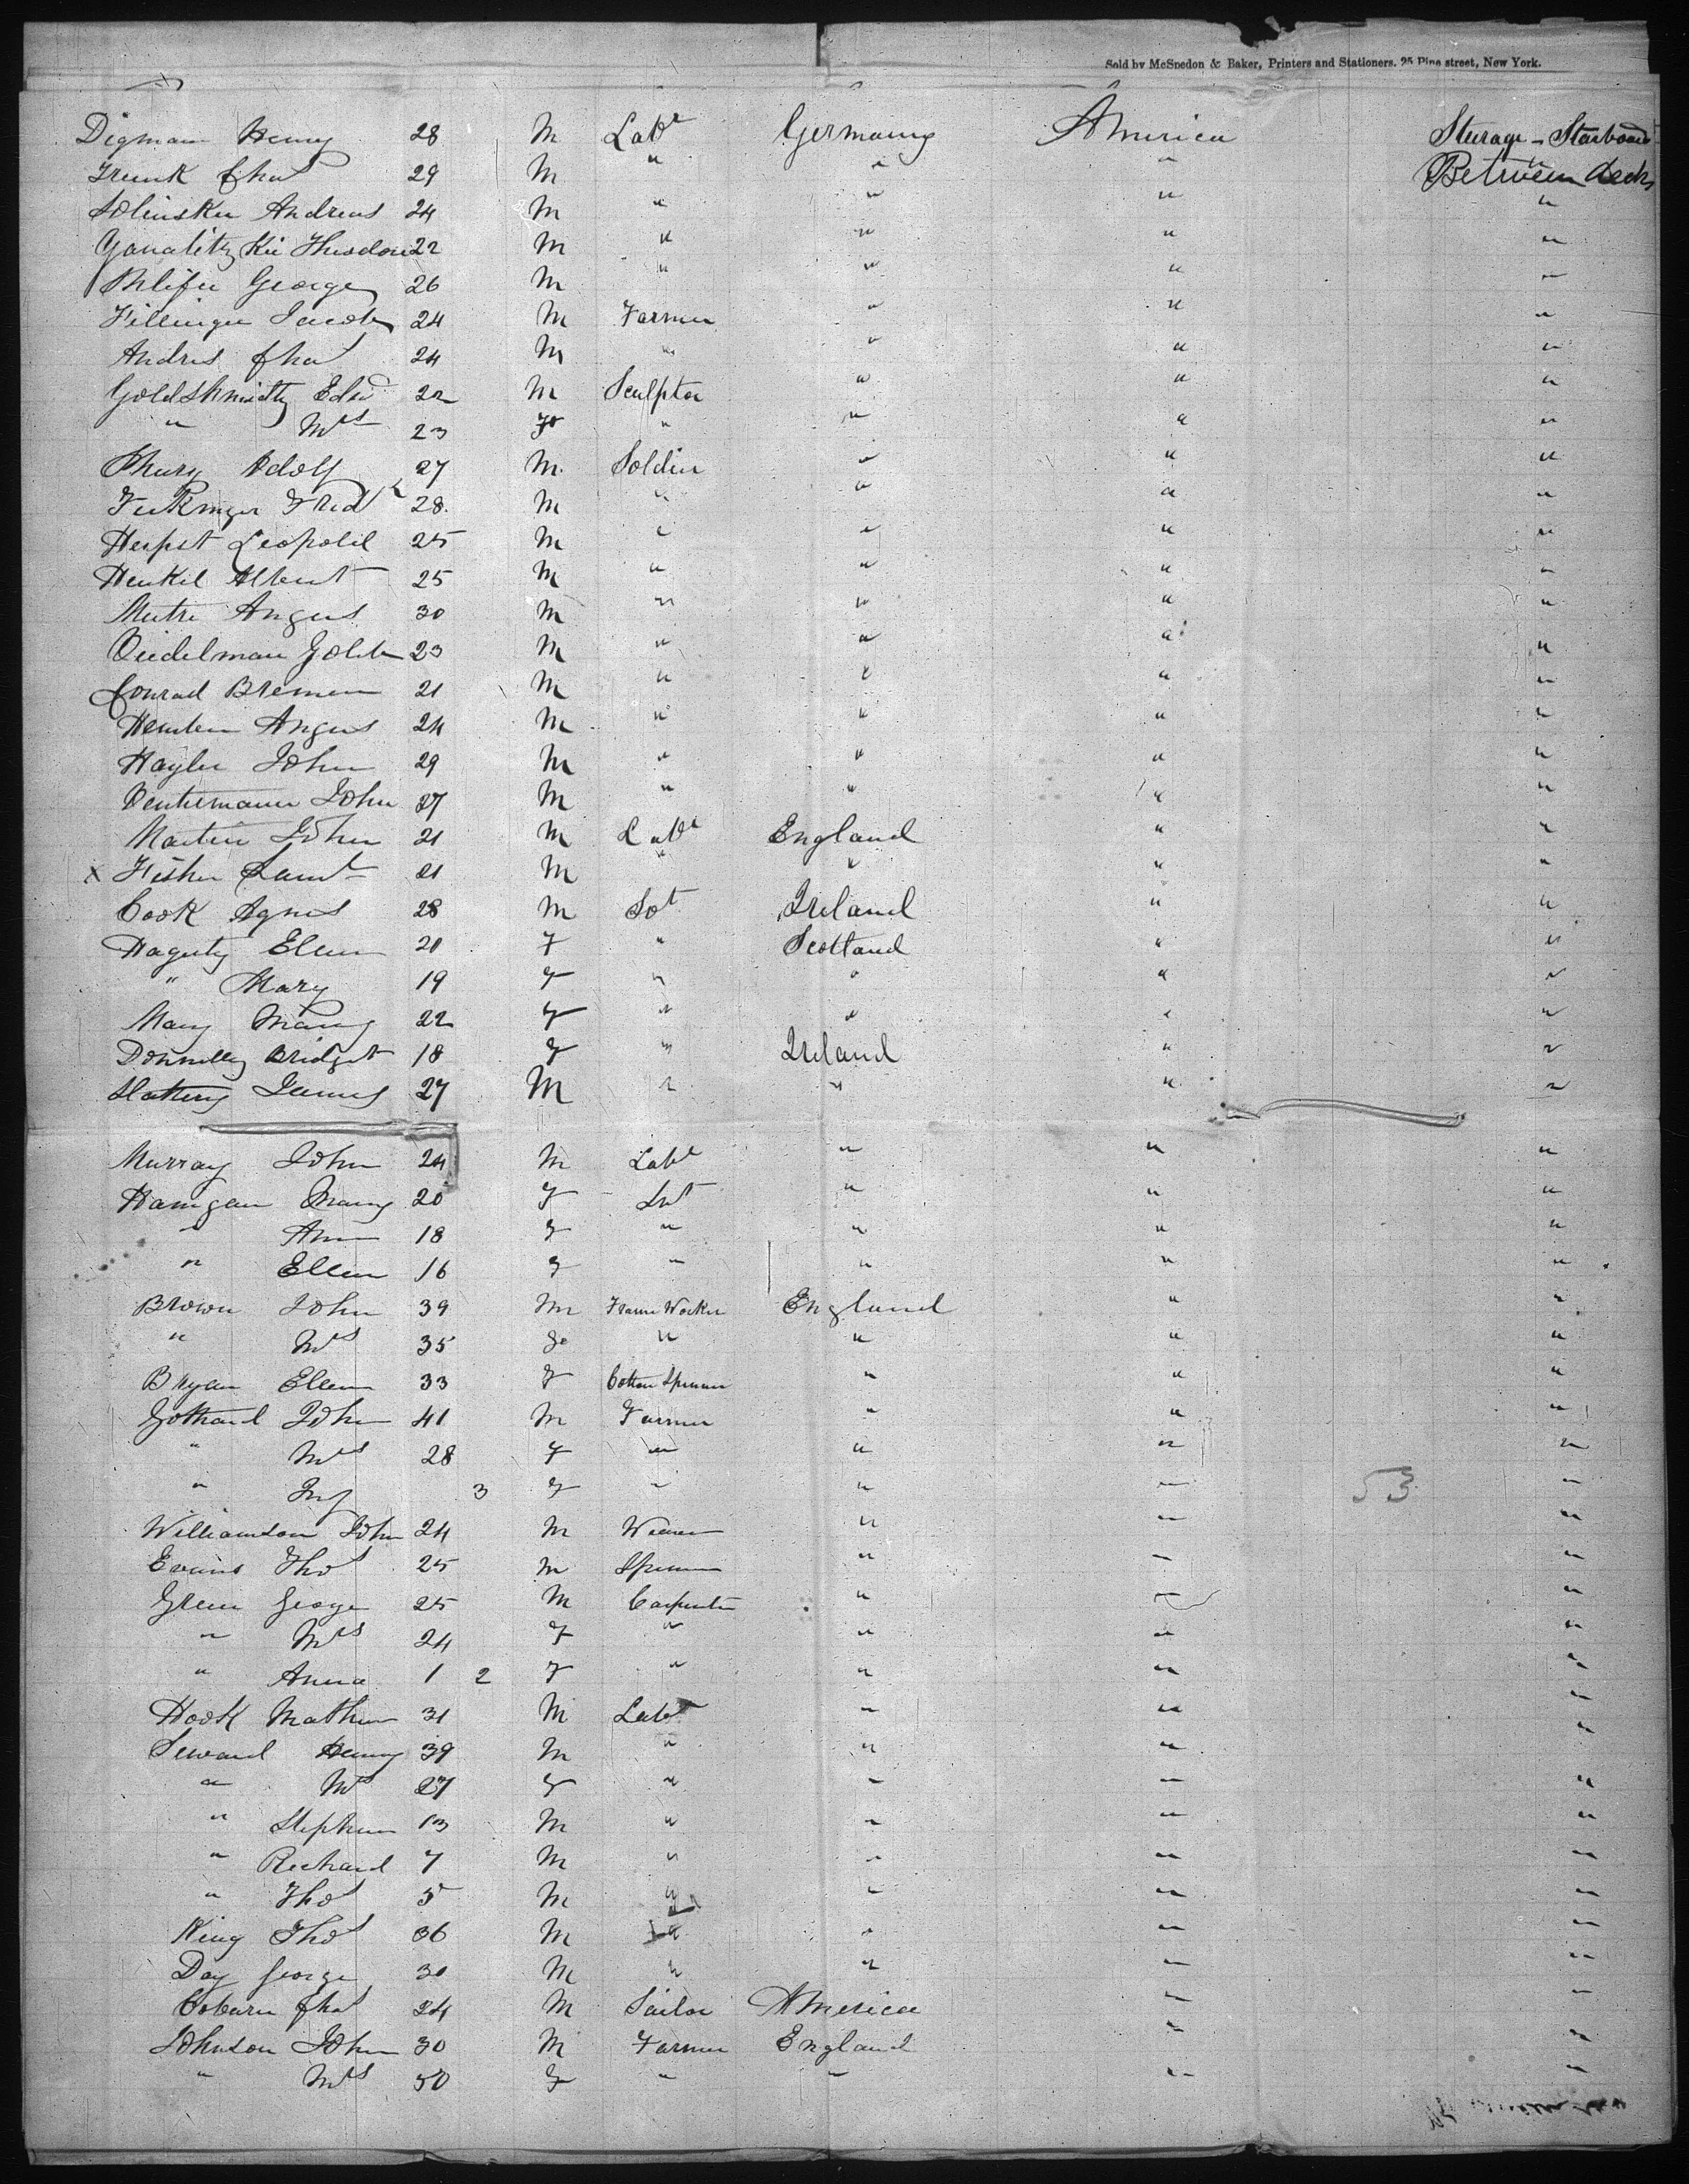 Sold by McSpedon & Baker, Printers and Stationers, 25 Pine street, New York.
Digman Henry 28 M Labr Germany America Steerage - Starboard
Trunk Chas 29 M " " " Between decks
Solinskee Andreas 24 M " " " "
Theodore 22 M " " " "
George 26 M " " " "
Fillinger Jacob 24 M Farmer " " "
Andres Chas 24 M " " " "
Goldshmidty Edwd 22 M Sculptor " " "
" Mrs 23 F " " " "
Adolf 27 M. Soldier " " "
Fredk 28. M " " " "
Herpst Leopold 25 M " " " "
Henkel Albert 25 M " " " "
Angus 30 M " " " "
23 M " " " "
Conrad Bremen 21 M " " " "
Angus 24 M " " " "
Hayler John 29 M " " " "
John 27 M " " " "
Martin John 21 M Labr England " "
x Fisher Saml 21 M " " " "
Cook Agnes 28 M Sot Ireland " "
Haguty Ellen 20 F " Scotland " "
" Mary 19 F " " " "
Mary 22 F " " " "
Donnelly Bridget 18 F " Ireland " "
Slattery James 27 M " " " "
Murray John 24 M Labr " " "
Hanigan Mary 20 F " " "
" Ann 18 F " " " "
" Ellen 16 F " " " "
Brown John 39 M Frame Worker England " "
" Mrs 35 F " " " "
Bryan Ellen 33 F Cotton Spinner " " "
Gothard John 41 M Farmer " " "
" Mrs 28 F " " " "
" Inf 3 F " " " 53 "
Williamson John 24 M Weaver " " "
Evans Thos 25 M Spinner " " "
Green George 25 M Carpenter " " "
" Mrs 24 F " " " "
" Anna 1 2 F " " " "
Hook Mathew 31 M Labr " " "
Seward Henry 39 M " " " "
" Mrs 27 F " " " "
" Stephen 13 M " " " "
" Richard 7 M " " " "
" Thos 5 M " " " "
King Thos 36 M " " " "
Day George 30 M " " " "
Coburn Chas 24 M Sailor America " "
Johnson John 30 M Farmer England " "
" Mrs 50 F " " " "